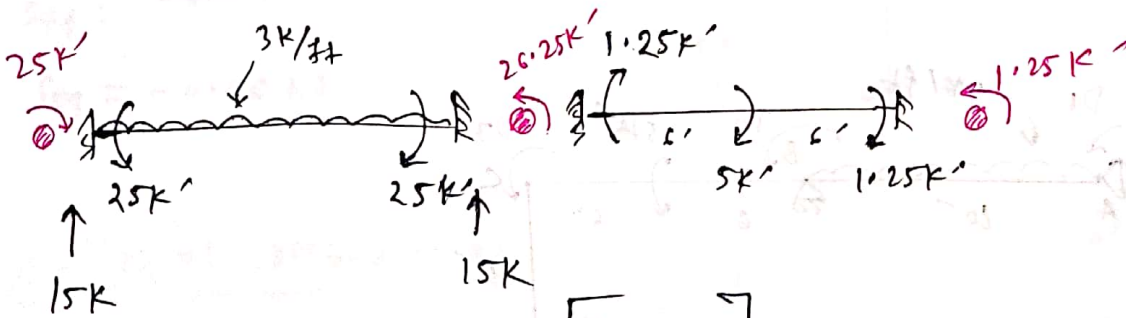 25K' 3K/ft 26.25K' 1.25K' 1.25K'
6' 6'
25K' 25K' 5K' 1.25K'
15K 15K